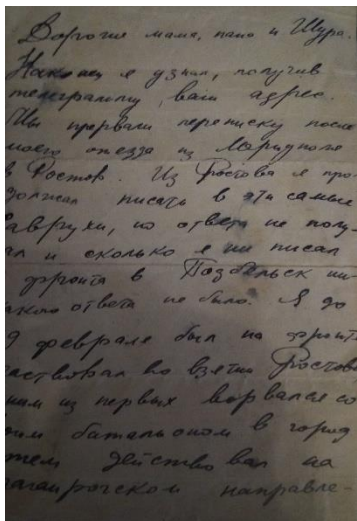 Дорогие мама, папа и Шура.
Наконец я узнал, получив
телеграмму, ваш адрес.
Мы прервали переписку после
моего отезда из
в Ростов. Из Ростова я про-
должал писать в эти самые
но ответа не полу-
и сколько я ни писал
фронта в ни-
ответа не было. Я до
феврале был на фронте
участвовал во взятии Ростова
из первых ворвался со
батальоном в город
действовал на
направле-